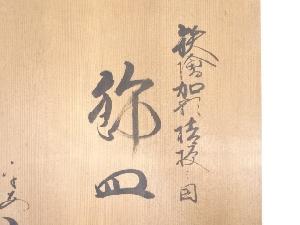 鉄繪加彩桔梗之図
飾皿